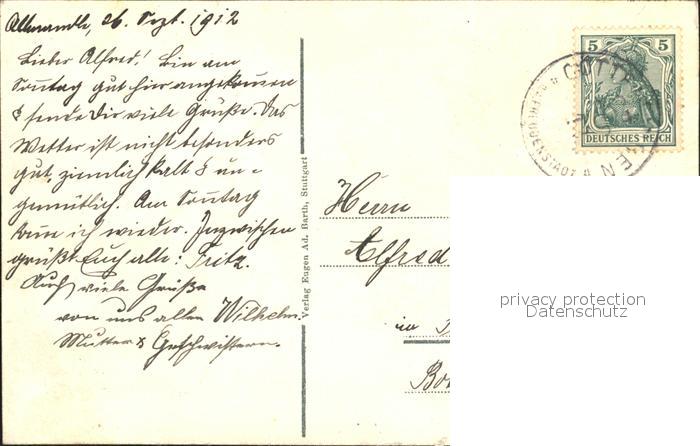 Allmandle, 26. Sept. 1912
Lieber Alfred! Bin am
Sonntag gut hier angekommen
& sende Dir viele Grüße. Das
Wetter ist nicht besonders
gut, ziemlich kalt & un-
gemütlich. Am Sonntag
komme ich wieder. Inzwischen
grüßt Euch alle: Fritz.
Auch viele Grüße
von uns allen Wilhelm.
Mutter & Geschwistern.
Verlag Eugen Ad. Barth, Stuttgart
5 5
DEUTSCHES REICH
Herrn
Alfred
in
privacy protection
Datenschutz